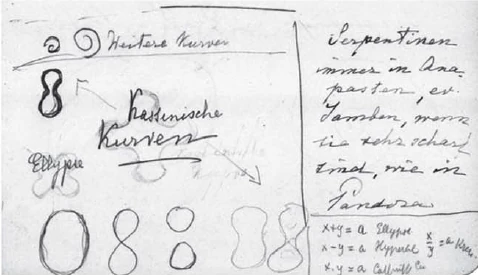 Weitere Kurven
Kassinische
Kurven
Ellypse
Serpentinen
immer in Ana-
pasten, ev.
Jamben, wenn
sie sehr scharf
sind, wie in
Pandora
x+y = a Ellypse
x-y = a Hyperbel
x/y = a Kreis
x.y = a